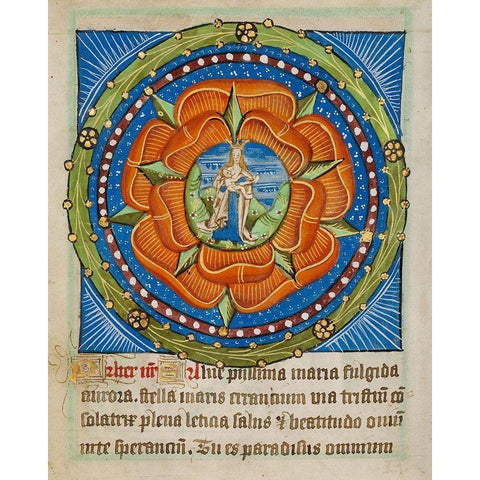 Pater nr̄ Aue piissima maria fulgida
aurora. stella maris errantium via tristiū cō
solatrix plena leticia salus & beatitudo om̄iū
in te sperantiū. Tu es paradisus omnium